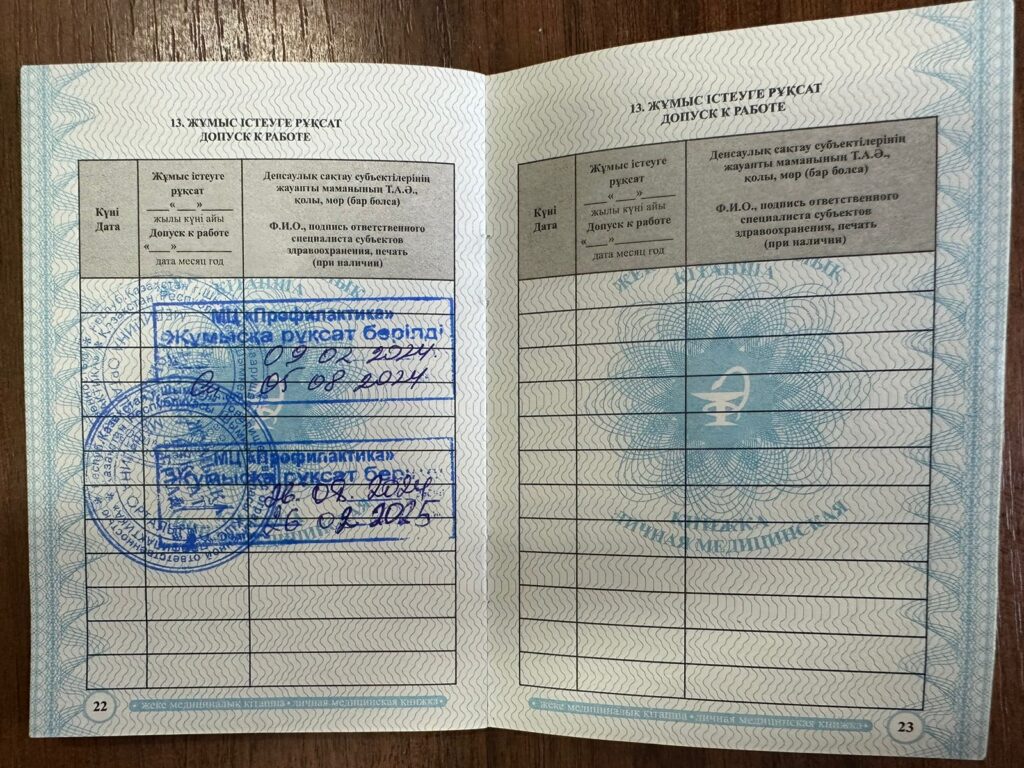 13. ЖҰМЫС ІСТЕУГЕ РҰҚСАТ
ДОПУСК К РАБОТЕ
Күні
Дата
Жұмыс істеуге
рұқсат
«__»
жылы күні айы
Допуск к работе
«__»
дата месяц год
Денсаулық сақтау субъектілерінің
жауапты маманының Т.А.Ә.,
қолы, мөр (бар болса)
Ф.И.О., подпись ответственного
специалиста субъектов
здравоохранения, печать
(при наличии)
МЦ «Профилактика»
Жұмысқа рұқсат берілді
09 02 2024
05 08 2024
МЦ «Профилактика»
Жұмысқа рұқсат берілді
26. 08. 2024
26 02 2025
22
жеке медициналық кітапша • личная медицинская книжка
13. ЖҰМЫС ІСТЕУГЕ РҰҚСАТ
ДОПУСК К РАБОТЕ
Күні
Дата
Жұмыс істеуге
рұқсат
«__»
жылы күні айы
Допуск к работе
«__»
дата месяц год
Денсаулық сақтау субъектілерінің
жауапты маманының Т.А.Ә.,
қолы, мөр (бар болса)
Ф.И.О., подпись ответственного
специалиста субъектов
здравоохранения, печать
(при наличии)
КІТАПША
КНИЖКА
ЛИЧНАЯ МЕДИЦИНСКАЯ
жеке медициналық кітапша • личная медицинская книжка
23